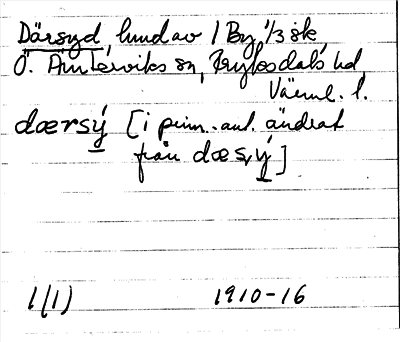 Därsyd, lund av 1 By 1/3 sk,
Ö. Ämterviks sn, Fryksdals hd,
Värml. l.
dœrsý [i prim. ant. ändrat
från dœs,ý]
1(1) 1910-16